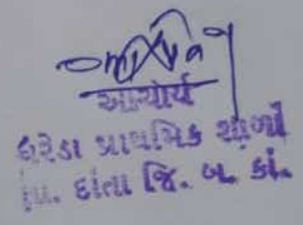 આચાર્ય
હરેડા પ્રાથમિક શાળા
તા. દાંતા જિ. બ. કાં.